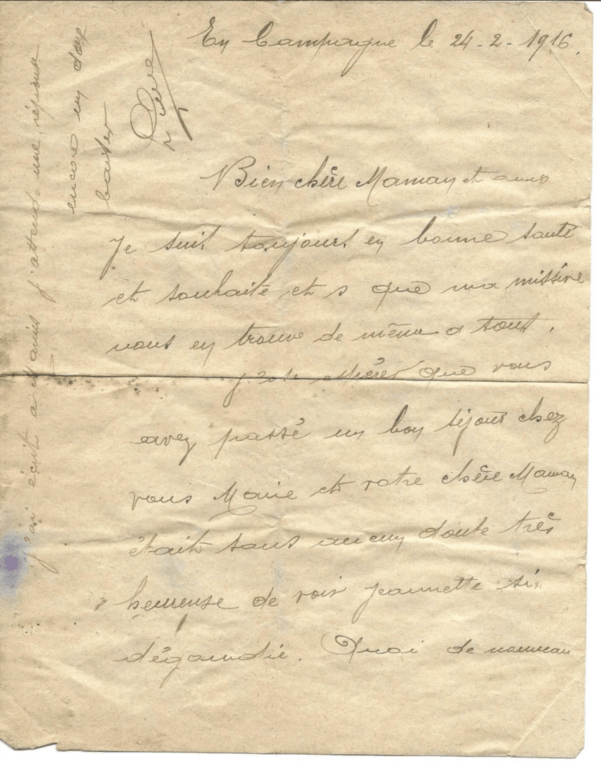 En Campagne le 24-2-1916.
Bien chère Maman et amis
Je suit toujours en bonne santé
et souhaite et s que ma missive
vous en trouve de même a tous.
que vous
avez passé un bon séjour chez
vous Marie et votre chère Maman
était sans aucun doute très
heureuse de voir Jeannette si
dégourdie. Quoi de nouveau
j'ai écrit a j'attends une réponse
encore un doux
baiser